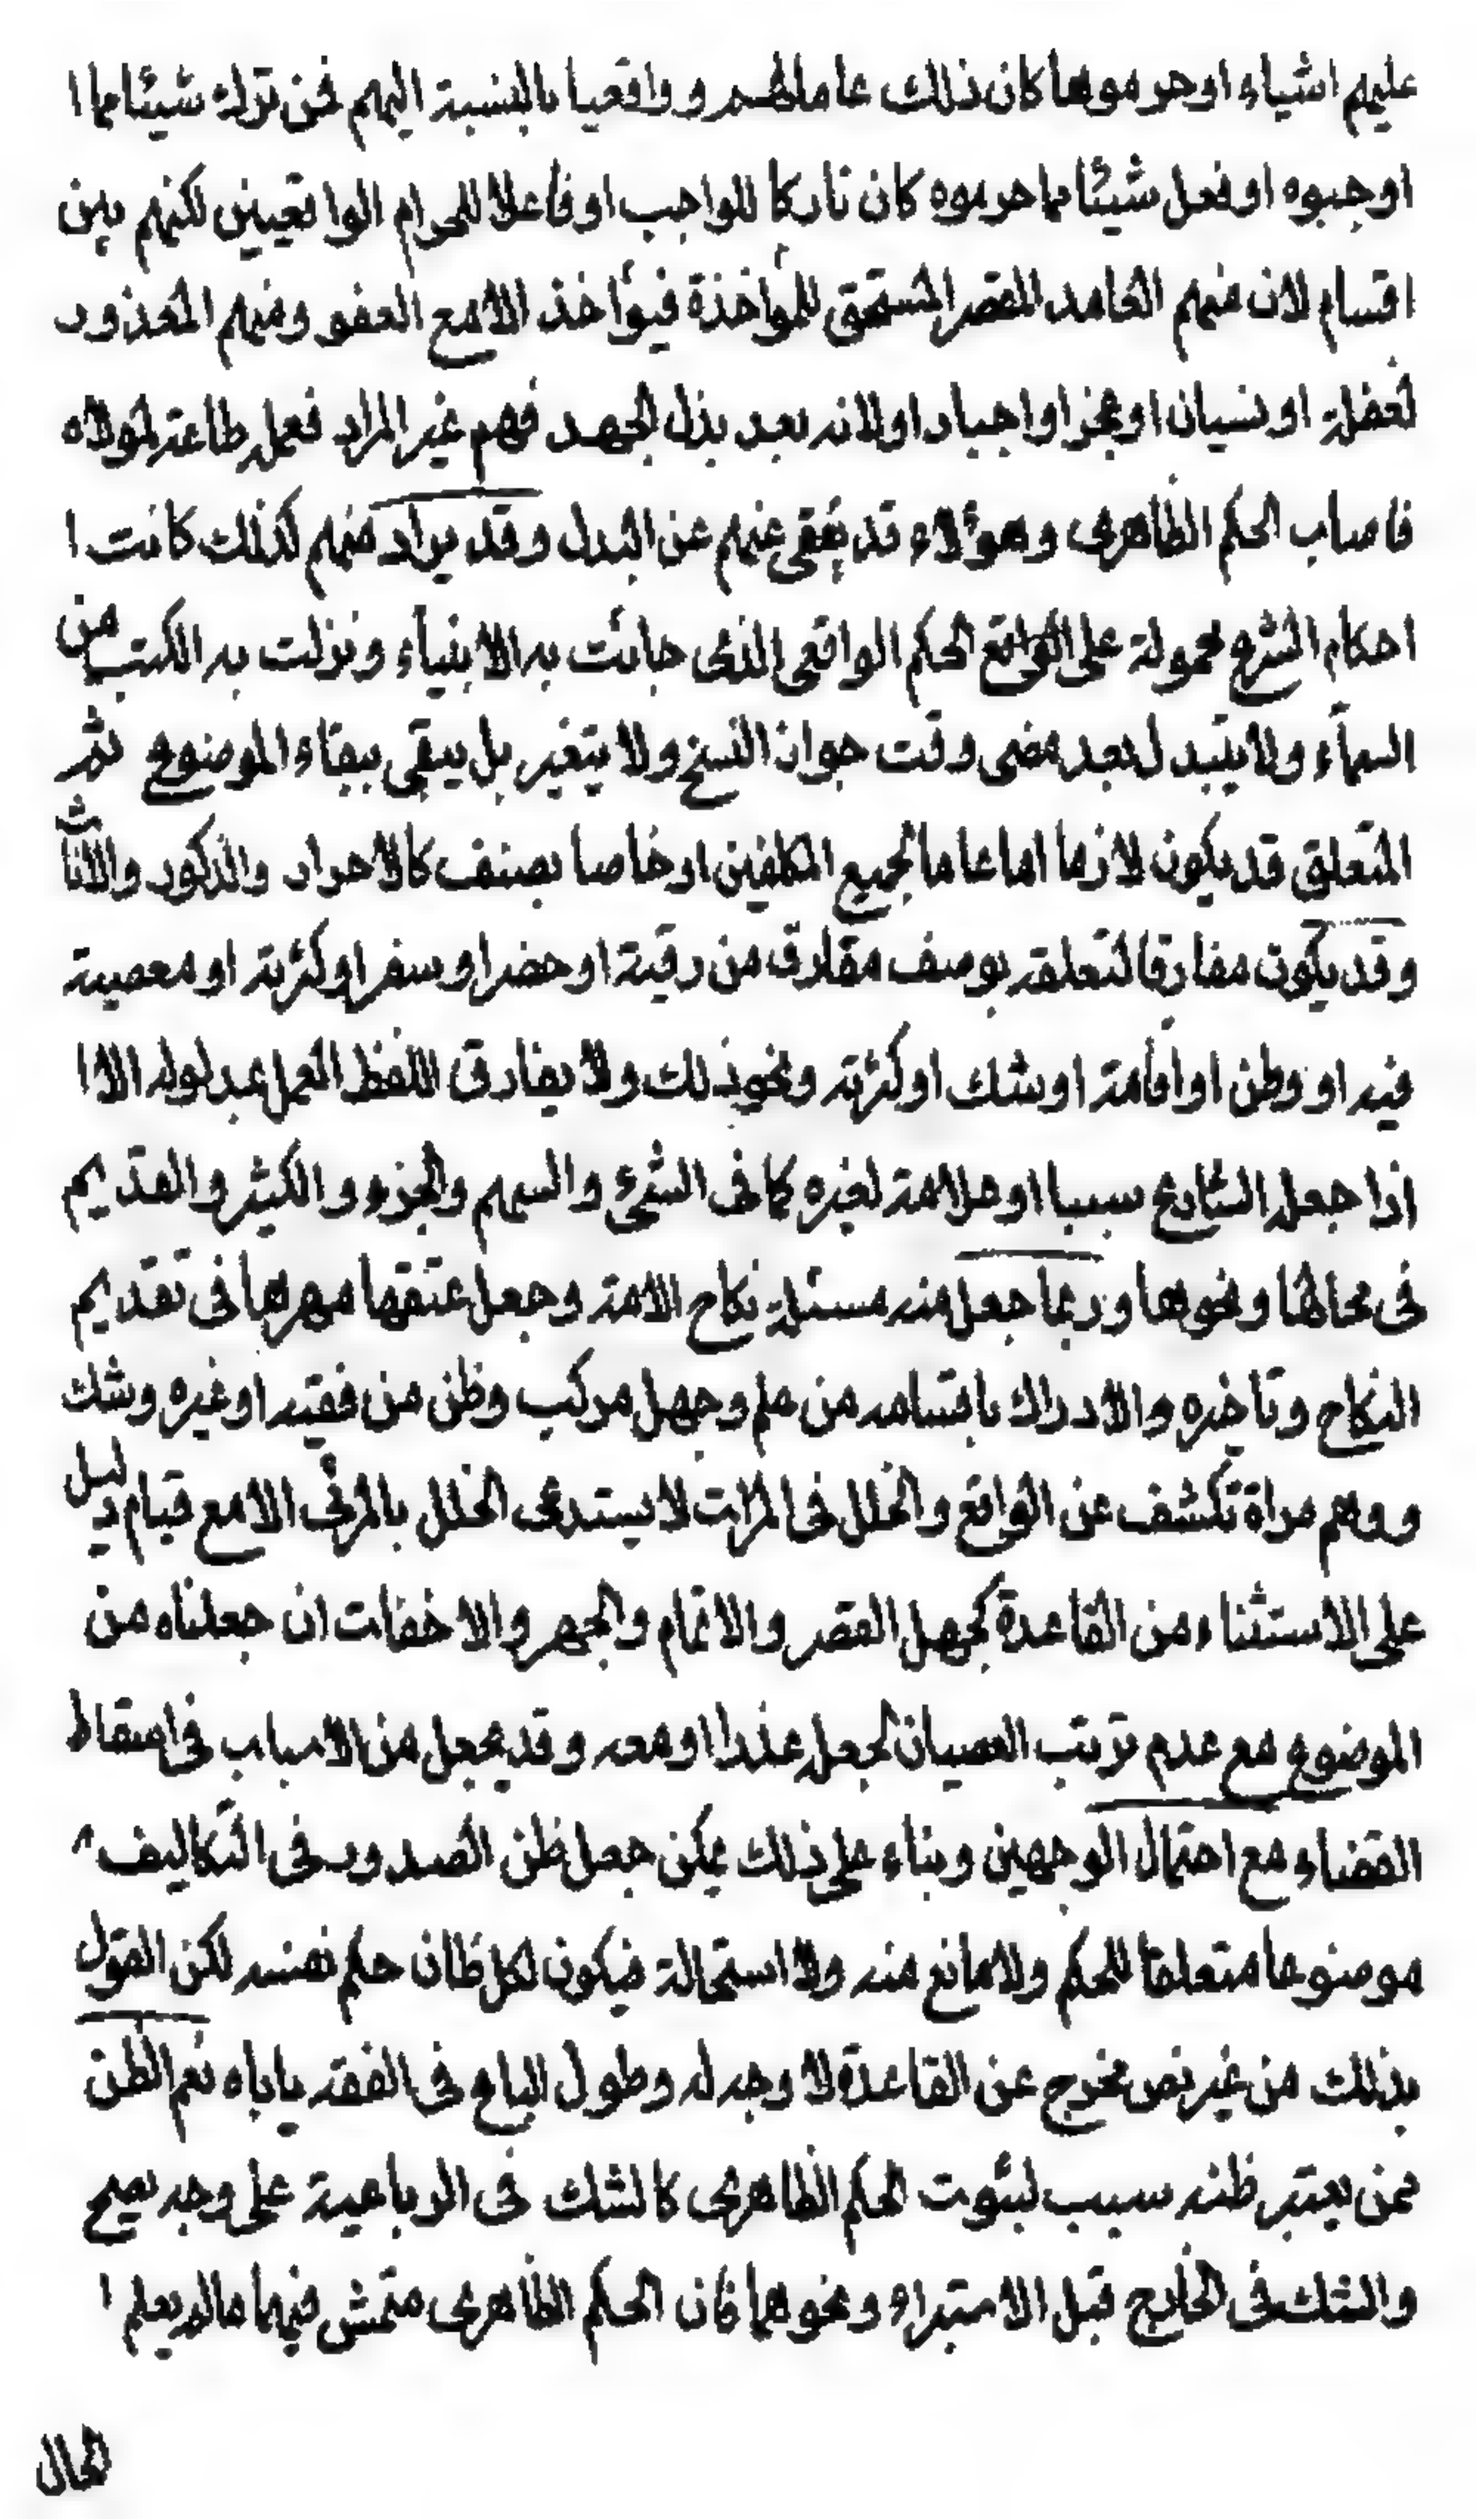 عليهم اشياء او حرموها كان ذلك عاما لهم وواقعيا بالنسبة اليهم فمن ترك شيئا مما ا
اوجبوه او فعل شيئا مما حرموه كان تاركا للواجب او فاعلا للحرام الواقعيين لكنهم بين
اقسام لان منهم العامد المقصر المستحق للمؤاخذة فيؤاخذ الا مع العفو ومنهم المعذور
لغفلة او نسيان او عجز او اجبار او لانه بعد بذل الجهد فهم غير المراد فعمله طاعة لمولاه
فاصاب الحكم الظاهرى وهؤلاء قد يكتفى عنهم عن البدل وقد يراد منهم كذلك كانت ا
احكام الشرع محمولة على الواقع الحكم الواقعى الذى جائت به الانبياء ونزلت به الكتب من
السمآء ولا يتبدل بعد مضى وقت جواز النسخ ولا يتغير بل يبقى ببقاء الموضوع ثم
المتعلق قد يكون لازما اما عاما لجميع المكلفين او خاصا بصنف كالاحرار والذكور والاناث
وقد يكون مفارقا لتعلقه بوصف مفارق من رقية او حضر او سفر او كثرته او معصية
فيه او وطن او اقامة او شك او كثرته ونحو ذلك ولا يفارق اللفظ العمل بمدلوله الا ا
اذا جعله الشارع سببا او علامة لغيره كما فى الشىء والسهم والجزء والكثير والقديم
فى محالها ونحوها وربما جعل منه مسئلة نكاح الامة وجعل عتقها مهرها فى تقديم
النكاح وتاخيره والادراك باقسامه من علم وجهل مركب وظن من فقيه او غيره وشك
ووهم مراة تكشف عن الواقع والخلل فى المرات لا يستدعى الخلل بالمرئى الا مع قيام دليل
على الاستثناء من القاعدة كجهل القصر والاتمام والجهر والاخفات ان جعلناه من
الموضوع مع عدم ترتب العصيان لجعله عذرا او معه وقد يجعل من الاسباب فى اسقاط
القضاء مع احتمال الوجهين وبناء على ذلك يمكن جعل ظن الصدور فى التكاليف
موضوعا متعلقا للحكم ولا مانع منه ولا استحالة فيكون لكل ظان حكم نفسه لكن القول
بذلك من غير نص مخرج عن القاعدة لا وجه له وطول الباع فى الفقه ياباه نعم الظن
ممن يعتبر ظنه سبب لثبوت الحكم الظاهرى كالشك فى الرباعية على وجه يصح
والشك فى الخارج قبل الاستبراء ونحوهما فان الحكم الظاهرى متمش فيهما ما لم يعلم ا
الحال